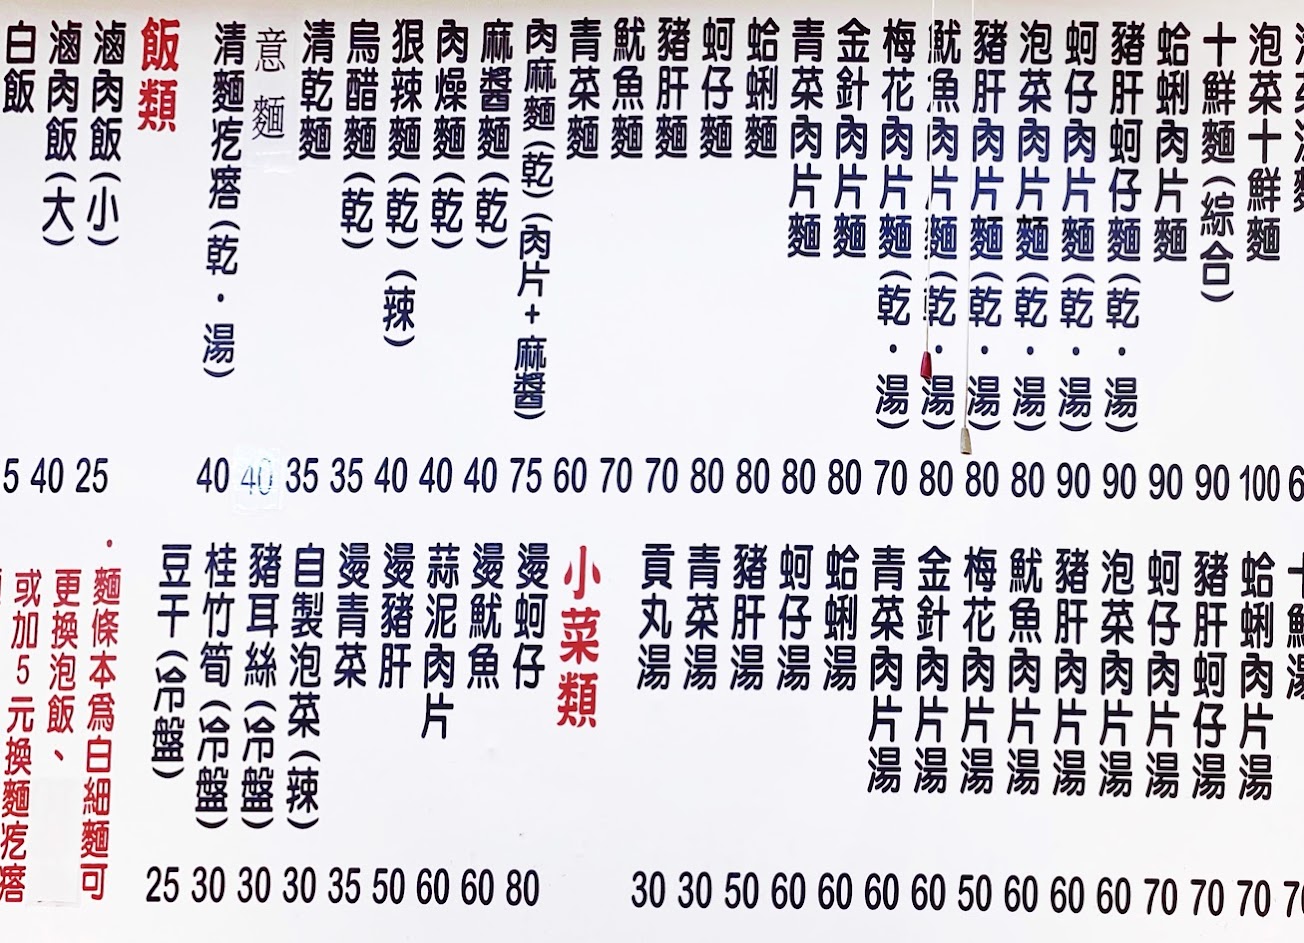 泡菜十鮮麵 100
十鮮麵(綜合) 90
蛤蜊肉片麵 90
豬肝蚵仔麵(乾・湯) 90
蚵仔肉片麵(乾・湯) 90
泡菜肉片麵(乾・湯) 80
豬肝肉片麵(乾・湯) 80
魷魚肉片麵(乾・湯) 80
梅花肉片麵(乾・湯) 70
金針肉片麵 80
青菜肉片麵 80
蛤蜊麵 80
蚵仔麵 80
豬肝麵 70
魷魚麵 70
青菜麵 60
肉麻麵(乾)(肉片+麻醬) 75
麻醬麵(乾) 40
肉燥麵(乾) 40
狠辣麵(乾)(辣) 40
烏醋麵(乾) 35
清乾麵 35
意麵 40
清麵疙瘩(乾・湯) 40
飯類
滷肉飯(小) 25
滷肉飯(大) 40
白飯 5
十鮮湯
蛤蜊肉片湯 70
豬肝蚵仔湯 70
蚵仔肉片湯 70
泡菜肉片湯 60
豬肝肉片湯 60
魷魚肉片湯 60
梅花肉片湯 50
金針肉片湯 60
青菜肉片湯 60
蛤蜊湯 60
蚵仔湯 60
豬肝湯 50
青菜湯 30
貢丸湯 30
小菜類
燙蚵仔 80
燙魷魚 60
蒜泥肉片 60
燙豬肝 50
燙青菜 35
自製泡菜(辣) 30
豬耳絲(冷盤) 30
桂竹筍(冷盤) 30
豆干(冷盤) 25
・麵條本為白細麵可
更換泡飯、
或加5元換麵疙瘩